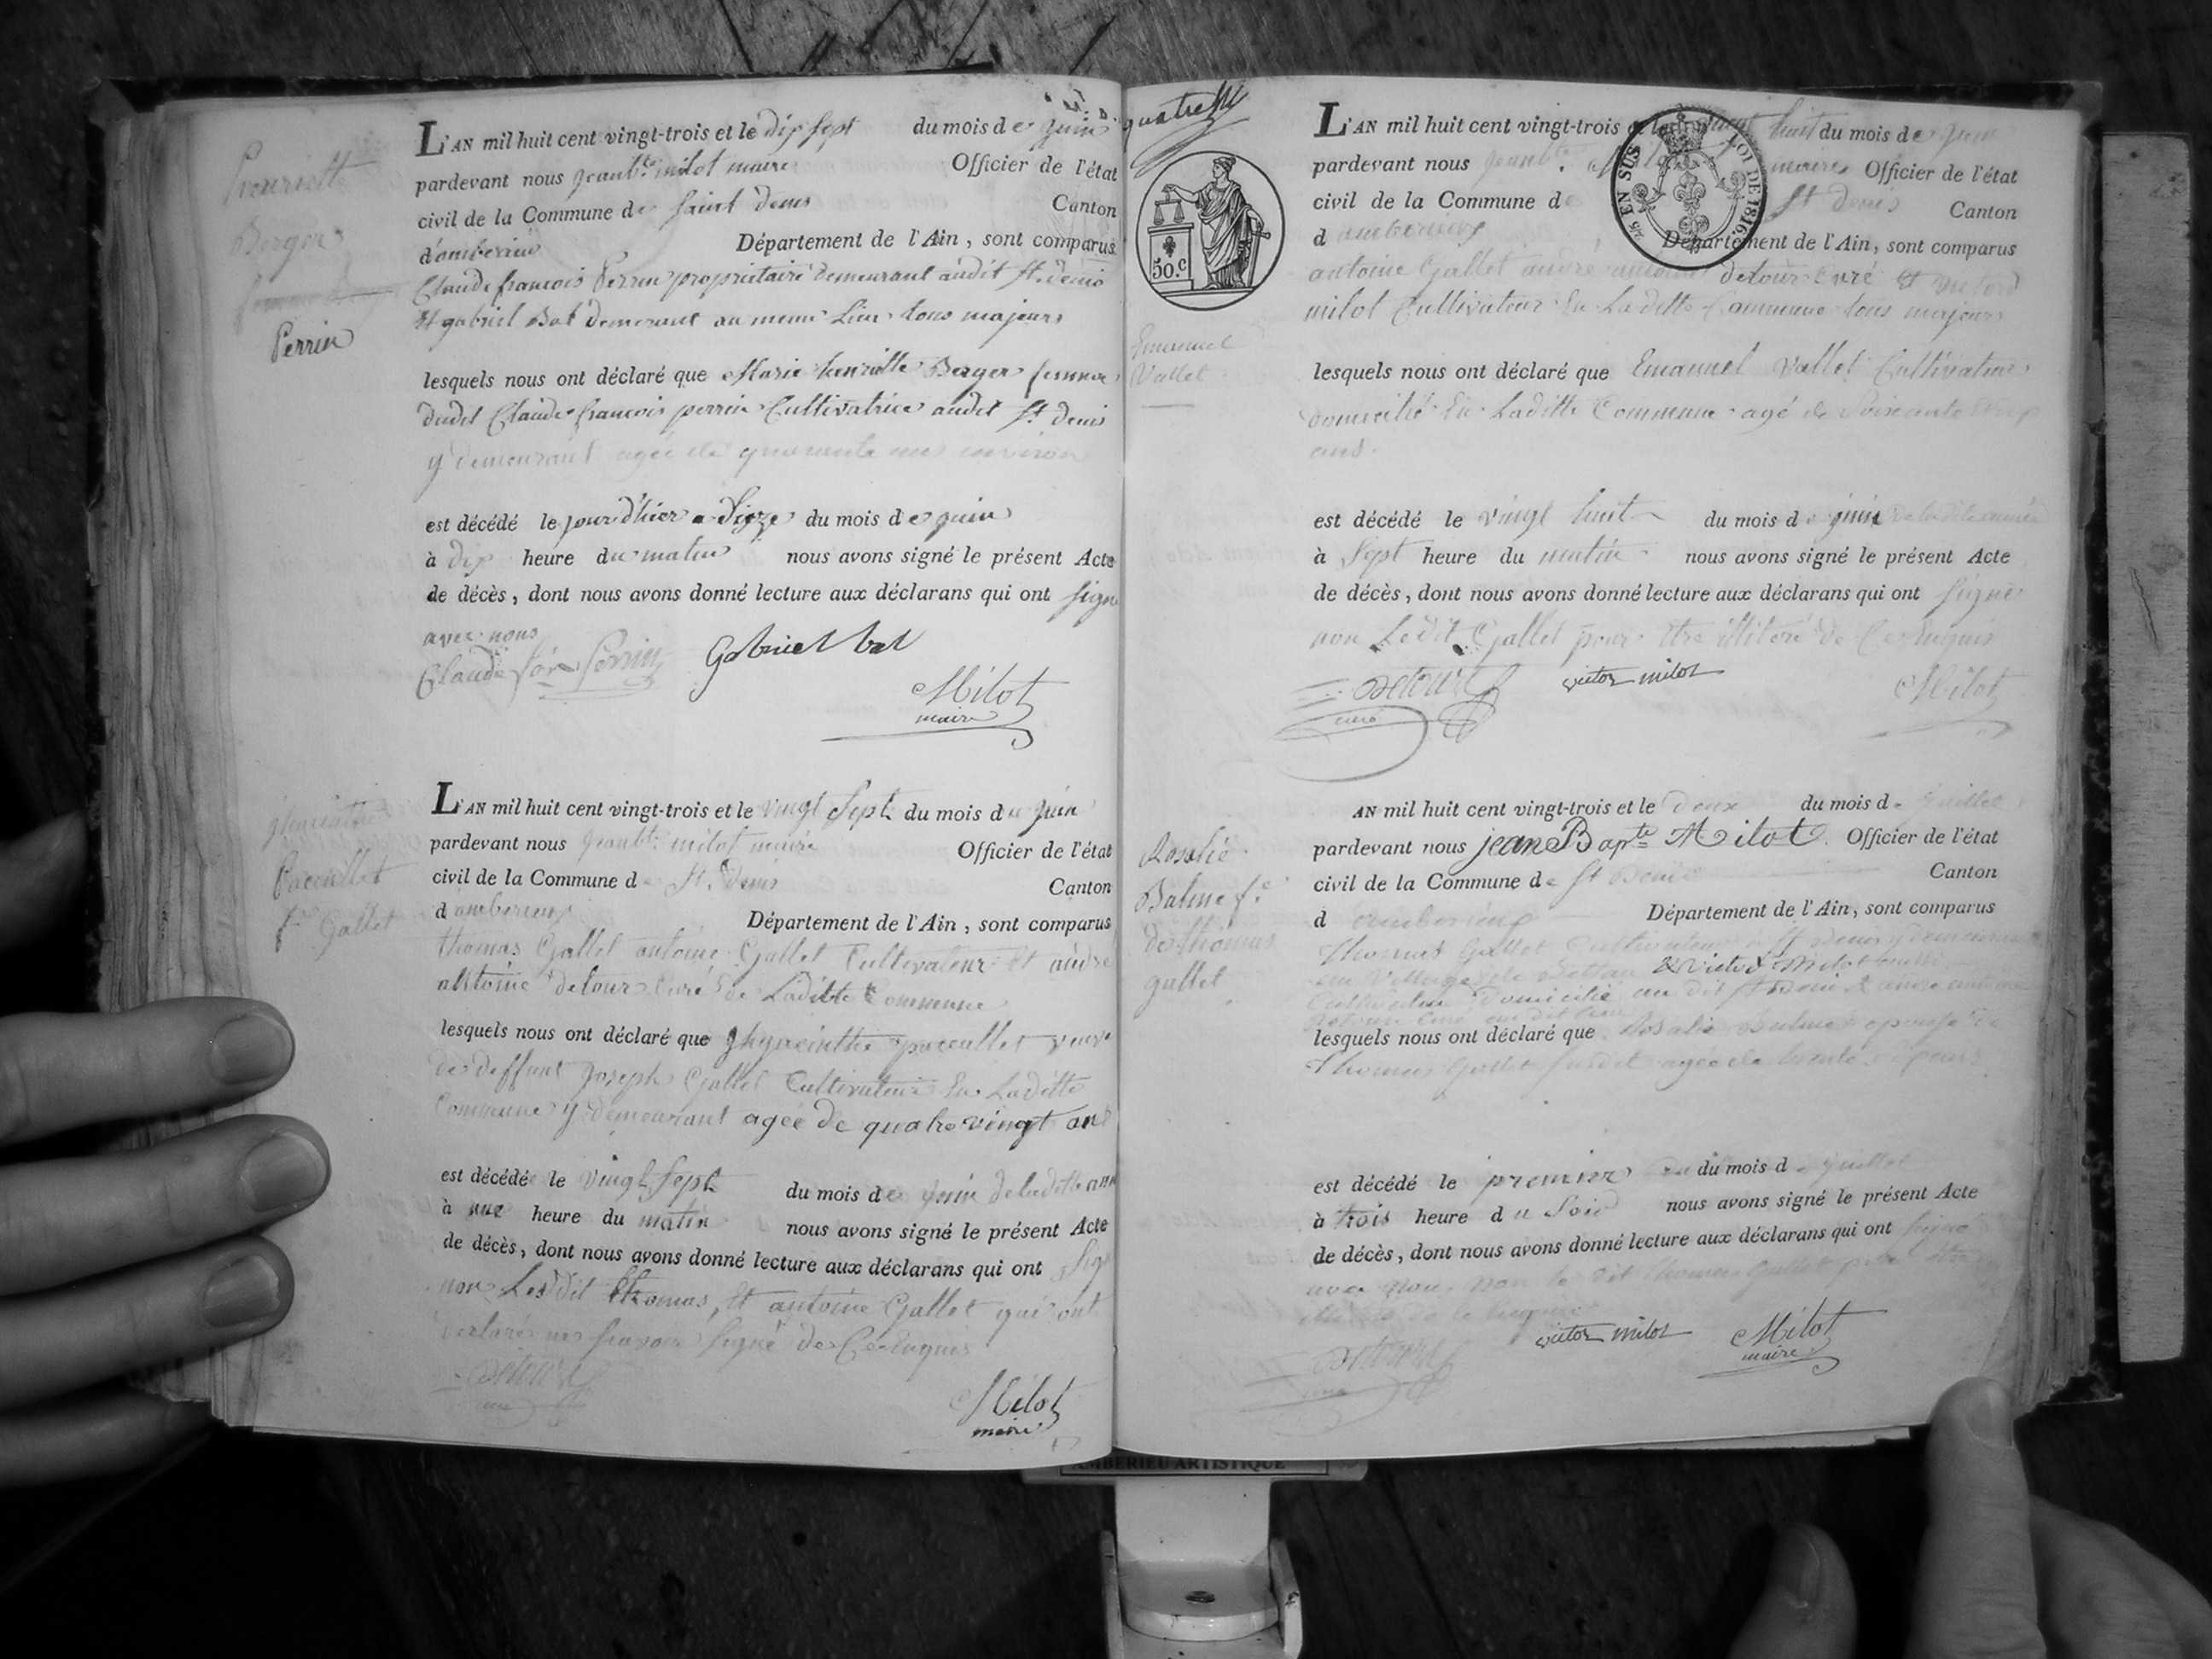 Henriette
Berger
Perrin
L'AN mil huit cent vingt-trois et le dix sept du mois de juin
pardevant nous jean bte milot maire Officier de l'état
civil de la Commune de saint denis Canton
d'amberieux Département de l'Ain, sont comparus
Claude francois Perrin propriétaire demeurant audit St. denis
et gabriel Bal demeurant au meme Lieu tous majeurs
lesquels nous ont déclaré que Marie henriette Berger femme
dudit Claude francois perrin Cultivatrice audit St. denis
y demeurant agée de quarante ans environ
est décédé le jour d'hier a Seize du mois de juin
à dix heure du matin nous avons signé le présent Acte
de décès, dont nous avons donné lecture aux déclarans qui ont signé
avec nous
Claude fois Perrin Gabriel bal
Milot
maire
Paccallet
Gallet
L'AN mil huit cent vingt-trois et le vingt Sept du mois de juin
pardevant nous jean bte milot maire Officier de l'état
civil de la Commune de St. denis Canton
d'amberieux Département de l'Ain, sont comparus
thomas Gallet antoine Gallet Cultivateur et andré
antoine detour Curé de Laditte Commune
lesquels nous ont déclaré que jhyacinthe paccallet veuve
de deffunt joseph Gallet Cultivateur En Laditte
Commune y demeurant agée de quatre vingt ans
est décédé le vingt sept du mois de juin de laditte année
à une heure du matin nous avons signé le présent Acte
de décès, dont nous avons donné lecture aux déclarans qui ont signé
non Lesdit thomas, et antoine Gallet qui ont
declaré ne scavoir signé de Ce Enquis
Detour
Milot
maire
quatre
50.c
25 EN SUS LOI DE 1816.
Emanuel
Vallet
L'AN mil huit cent vingt-trois et le vingt huit du mois de juin
pardevant nous jean bte maire Officier de l'état
civil de la Commune de St denis Canton
d amberieux Département de l'Ain, sont comparus
antoine Gallet andré antoine detour curé et victor
milot Cultivateur En Laditte Commune tous majeurs
lesquels nous ont déclaré que Emanuel Vallet Cultivateur
domicilié En Laditte Commune agé de Soixante
ans.
est décédé le vingt huit du mois de juin de laditte année
à Sept heure du matin nous avons signé le présent Acte
de décès, dont nous avons donné lecture aux déclarans qui ont signé
non Ledit Gallet pour Etre illiteré de Ce Enquis
Detour victor milot Milot
curé
Rosalie
Balme fe
de thomas
gallet
AN mil huit cent vingt-trois et le deux du mois de juillet
pardevant nous jean Bapte Milot Officier de l'état
civil de la Commune de St Denis Canton
d amberieux Département de l'Ain, sont comparus
Thomas Gallet Cultivateur à St Denis y demeurant
au village de & Victor Milot
Cultivateur domicilié au dit St Denis & andré antoine
Detour Curé au dit lieu
lesquels nous ont déclaré que Rosalie Balme epouse de
Thomas Gallet susdit agée de trente
est décédé le premier du mois de juillet
à trois heure du Soir nous avons signé le présent Acte
de décès, dont nous avons donné lecture aux déclarans qui ont signé
avec nous non le dit thomas Gallet pour être
Detour victor milot Milot
maire
AMBERIEU ARTISTIQUE